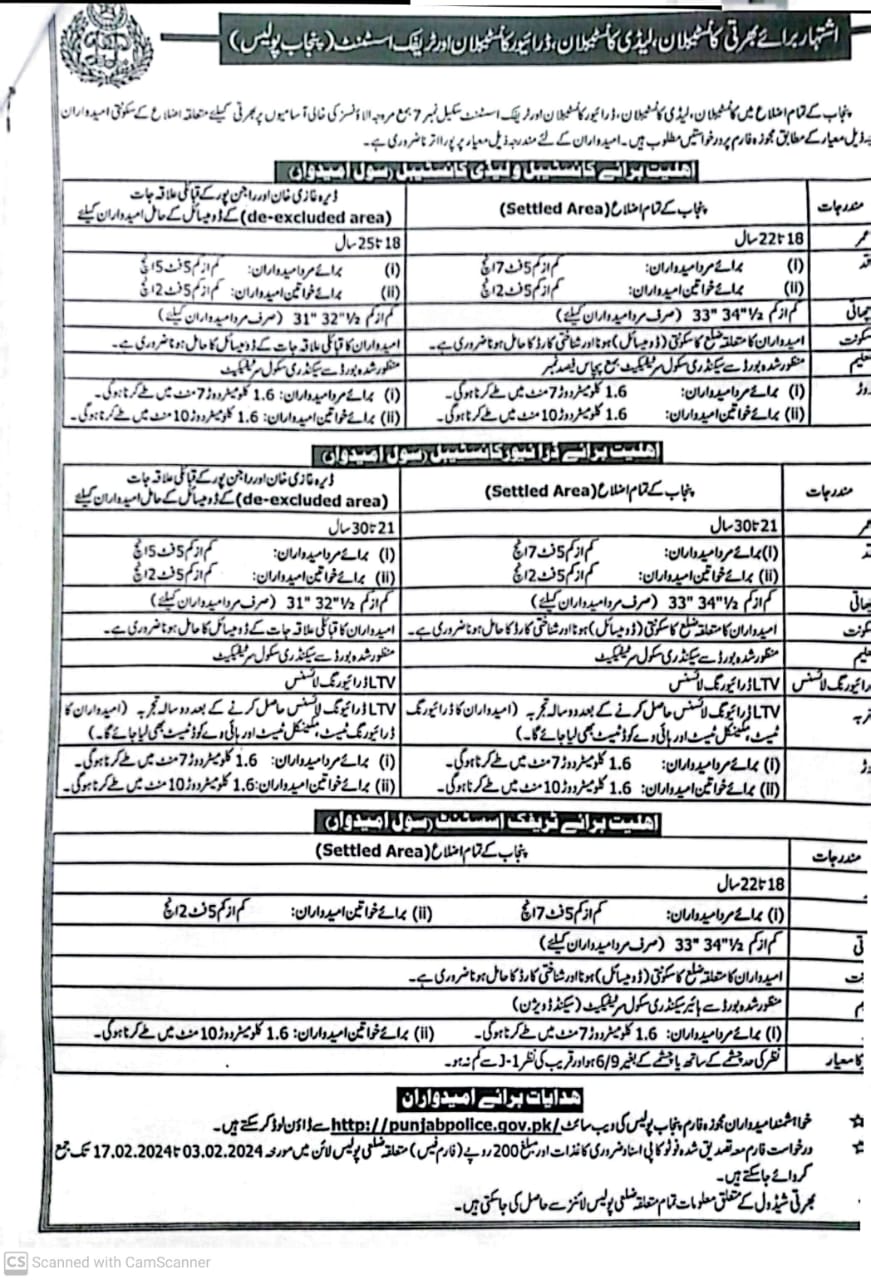 اشتہار برائے بھرتی کانسٹیبلان، لیڈی کانسٹیبلان، ڈرائیور کانسٹیبلان اور ٹریفک اسسٹنٹ (پنجاب پولیس)
پنجاب کے تمام اضلاع میں کانسٹیبلان، لیڈی کانسٹیبلان، ڈرائیور کانسٹیبلان اور ٹریفک اسسٹنٹ سکیل نمبر 7 بمع مروجہ الاؤنسز کی خالی آسامیوں پر بھرتی کیلئے متعلقہ اضلاع کے سکونتی امیدواران
ذیل معیار کے مطابق مجوزہ فارم پر درخواستیں مطلوب ہیں۔ امیدواران کے لئے مندرجہ ذیل معیار پر پورا اترنا ضروری ہے۔
اہلیت برائے کانسٹیبل و لیڈی کانسٹیبل (سول امیدوار)
مندرجات
پنجاب کے تمام اضلاع (Settled Area)
ڈیرہ غازی خان اور راجن پور کے قبائلی علاقہ جات
(de-excluded area) کے ڈومیسائل کے حامل امیدواران کیلئے
18 تا 22 سال
18 تا 25 سال
(i) برائے مرد امیدواران: کم از کم 5 فٹ 7 انچ
(ii) برائے خواتین امیدواران: کم از کم 5 فٹ 2 انچ
(i) برائے مرد امیدواران: کم از کم 5 فٹ 5 انچ
(ii) برائے خواتین امیدواران: کم از کم 5 فٹ 2 انچ
کم از کم 33" 34½" (صرف مرد امیدواران کیلئے)
کم از کم 31" 32½" (صرف مرد امیدواران کیلئے)
امیدواران کا متعلقہ ضلع کا سکونتی (ڈومیسائل) ہونا اور شناختی کارڈ کا حامل ہونا ضروری ہے۔
امیدواران کا قبائلی علاقہ جات کے ڈومیسائل کا حامل ہونا ضروری ہے۔
منظور شدہ بورڈ سے سیکنڈری سکول سرٹیفکیٹ بمع پچاس فیصد نمبر
منظور شدہ بورڈ سے سیکنڈری سکول سرٹیفکیٹ
(i) برائے مرد امیدواران: 1.6 کلومیٹر دوڑ 7 منٹ میں طے کرنا ہوگی۔
(ii) برائے خواتین امیدواران: 1.6 کلومیٹر دوڑ 10 منٹ میں طے کرنا ہوگی۔
(i) برائے مرد امیدواران: 1.6 کلومیٹر دوڑ 7 منٹ میں طے کرنا ہوگی۔
(ii) برائے خواتین امیدواران: 1.6 کلومیٹر دوڑ 10 منٹ میں طے کرنا ہوگی۔
اہلیت برائے ڈرائیور کانسٹیبل (سول امیدوار)
مندرجات
پنجاب کے تمام اضلاع (Settled Area)
ڈیرہ غازی خان اور راجن پور کے قبائلی علاقہ جات
(de-excluded area) کے ڈومیسائل کے حامل امیدواران کیلئے
21 تا 30 سال
21 تا 30 سال
(i) برائے مرد امیدواران: کم از کم 5 فٹ 7 انچ
(ii) برائے خواتین امیدواران: کم از کم 5 فٹ 2 انچ
(i) برائے مرد امیدواران: کم از کم 5 فٹ 5 انچ
(ii) برائے خواتین امیدواران: کم از کم 5 فٹ 2 انچ
کم از کم 33" 34½" (صرف مرد امیدواران کیلئے)
کم از کم 31" 32½" (صرف مرد امیدواران کیلئے)
امیدواران کا متعلقہ ضلع کا سکونتی (ڈومیسائل) ہونا اور شناختی کارڈ کا حامل ہونا ضروری ہے۔
امیدواران کا قبائلی علاقہ جات کے ڈومیسائل کا حامل ہونا ضروری ہے۔
منظور شدہ بورڈ سے سیکنڈری سکول سرٹیفکیٹ
منظور شدہ بورڈ سے سیکنڈری سکول سرٹیفکیٹ
ڈرائیونگ لائسنس
LTV ڈرائیونگ لائسنس
LTV ڈرائیونگ لائسنس
LTV ڈرائیونگ لائسنس حاصل کرنے کے بعد دو سالہ تجربہ (امیدواران کا ڈرائیونگ
ٹیسٹ، مکینیکل ٹیسٹ اور ہائی وے کوڈ ٹیسٹ بھی لیا جائے گا۔)
LTV ڈرائیونگ لائسنس حاصل کرنے کے بعد دو سالہ تجربہ (امیدواران کا
ڈرائیورنگ ٹیسٹ، مکینیکل ٹیسٹ اور ہائی وے کوڈ ٹیسٹ بھی لیا جائے گا۔)
(i) برائے مرد امیدواران: 1.6 کلومیٹر دوڑ 7 منٹ میں طے کرنا ہوگی۔
(ii) برائے خواتین امیدواران: 1.6 کلومیٹر دوڑ 10 منٹ میں طے کرنا ہوگی۔
(i) برائے مرد امیدواران: 1.6 کلومیٹر دوڑ 7 منٹ میں طے کرنا ہوگی۔
(ii) برائے خواتین امیدواران: 1.6 کلومیٹر دوڑ 10 منٹ میں طے کرنا ہوگی۔
اہلیت برائے ٹریفک اسسٹنٹ (سول امیدوار)
مندرجات
پنجاب کے تمام اضلاع (Settled Area)
18 تا 22 سال
(i) برائے مرد امیدواران: کم از کم 5 فٹ 7 انچ (ii) برائے خواتین امیدواران: کم از کم 5 فٹ 2 انچ
کم از کم 33" 34½" (صرف مرد امیدواران کیلئے)
امیدواران کا متعلقہ ضلع کا سکونتی (ڈومیسائل) ہونا اور شناختی کارڈ کا حامل ہونا ضروری ہے۔
منظور شدہ بورڈ سے ہائیر سیکنڈری سکول سرٹیفکیٹ (سیکنڈ ڈویژن)
(i) برائے مرد امیدواران: 1.6 کلومیٹر دوڑ 7 منٹ میں طے کرنا ہوگی۔ (ii) برائے خواتین امیدواران: 1.6 کلومیٹر دوڑ 10 منٹ میں طے کرنا ہوگی۔
کا معیار
نظر کی حد چشمے کے ساتھ یا چشمے کے بغیر 6/9 ہو اور قریب کی نظر J-1 سے کم نہ ہو۔
ہدایات برائے امیدواران
خواہشمند امیدواران مجوزہ فارم پنجاب پولیس کی ویب سائٹ http://punjabpolice.gov.pk/ سے ڈاؤن لوڈ کر سکتے ہیں۔
درخواست فارم معہ تصدیق شدہ فوٹو کاپی اسناد و ضروری کاغذات اور مبلغ 200 روپے (فارم فیس) متعلقہ ضلعی پولیس لائن میں مورخہ 03.02.2024 تا 17.02.2024 تک جمع
کروائے جا سکتے ہیں۔
بھرتی شیڈول کے متعلق معلومات تمام متعلقہ ضلعی پولیس لائنز سے حاصل کی جا سکتی ہیں۔
CS Scanned with CamScanner